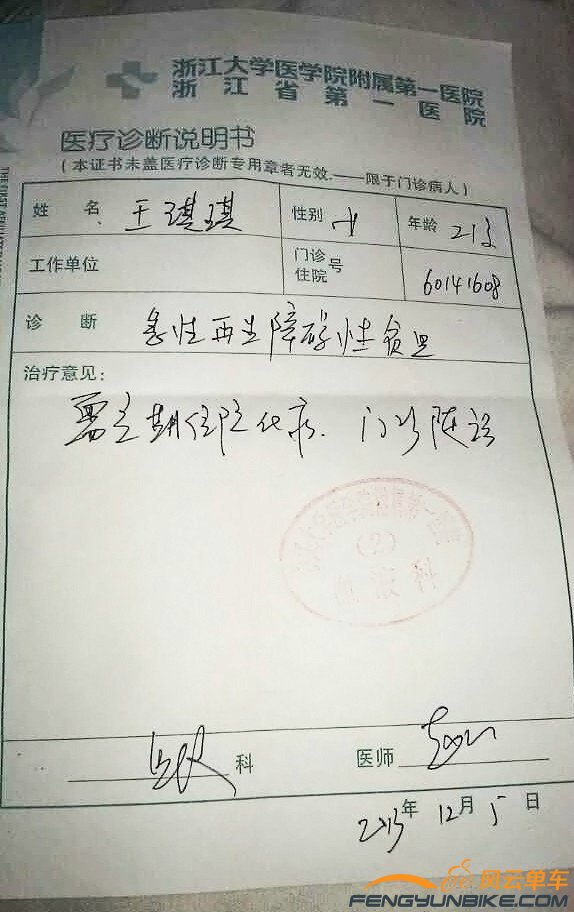 浙江大学医学院附属第一医院
浙江省第一医院
医疗诊断说明书
(本证书未盖医疗诊断专用章者无效.——限于门诊病人)
姓 名 王琪琪 性别 女 年龄 21岁
工作单位 门诊住院号 60141608
诊 断 急性再生障碍性贫血
治疗意见:
需定期住院化疗. 门诊随诊
科 医师
2013年 12月 5日
风云单车
FENGYUNBIKE.COM